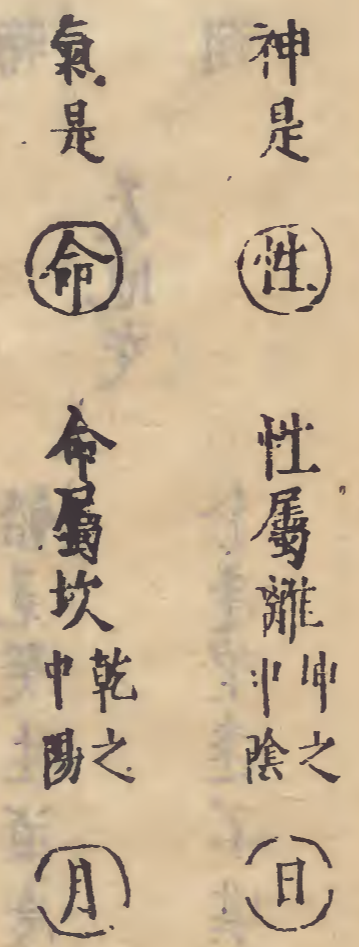 神是性性屬離坤之中陰日
氣是命命屬坎乾之中陽月